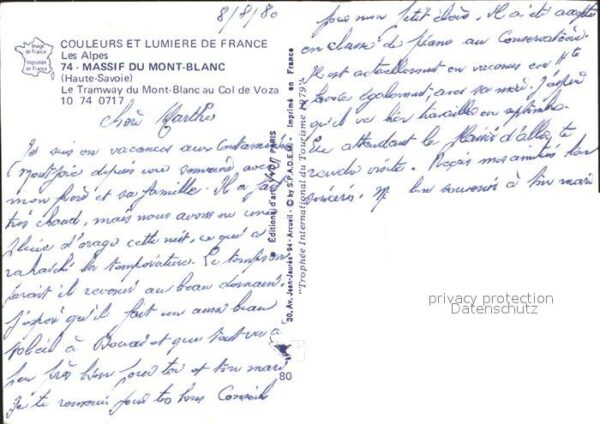 8/8/80
Image de France
Imprimée en France
COULEURS ET LUMIERE DE FRANCE
Les Alpes
74 - MASSIF DU MONT-BLANC
(Haute-Savoie)
Le Tramway du Mont-Blanc au Col de Voza
10 74 0717
Chère Marthe
Je suis en vacances aux Contamines
Montjoie depuis une semaine avec
mon frère et sa famille. Il a fait
très chaud, mais nous avons eu une
pluie d'orage cette nuit, ce qui a
rafraîchi la température. Le temps
paraît il revenir au beau demain.
J'espère qu'il fait un aussi beau
soleil à Douai et que tout va à
peu près bien pour toi et ton mari
Je te remercie pour tes bons Conseils
Editions d'art YVON PARIS
30, Av. Jean-Jaurès 94 - Arcueil - © by S.P.A.D.E.M. - Imprimé en France
"Trophée International du Tourisme 1979"
80
pour mon petit élève. Il a été accepté
en classe de piano au Conservatoire.
Il est actuellement en vacances en Hte
Savoie également, avec sa mère. J'espère
qu'il va bien travailler en septembre.
En attendant le plaisir d'aller te
rendre visite. Reçois mes amitiés bien
sincères. Bon souvenir à ton mari
privacy protection
Datenschutz